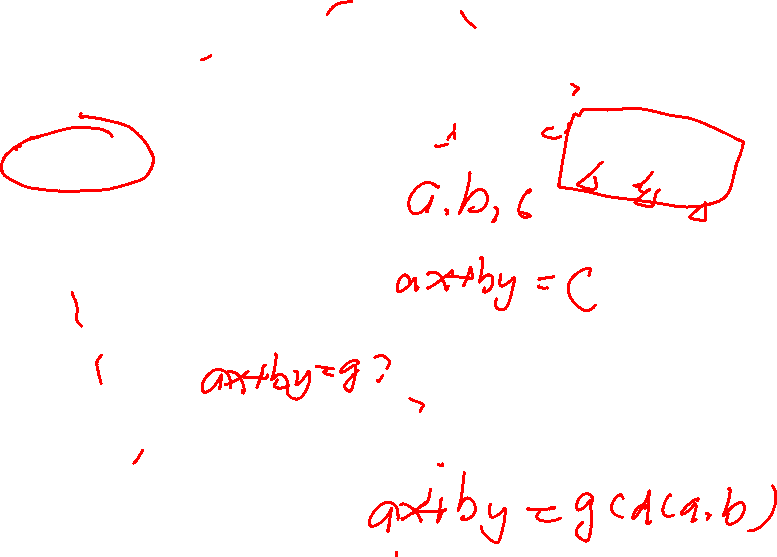 a,b,c
ax+by=c
ax+by=g?
ax+by=gcd(a,b)